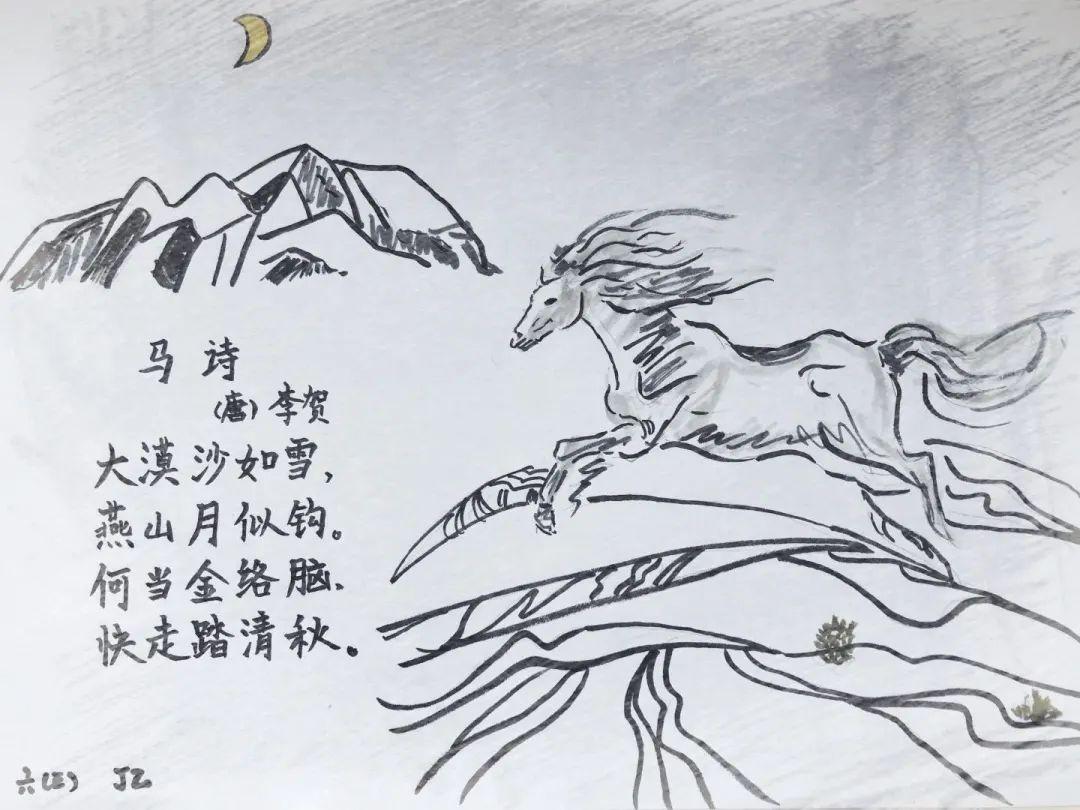 马诗
(唐)李贺
大漠沙如雪，
燕山月似钩。
何当金络脑、
快走踏清秋。
六(三) JZ